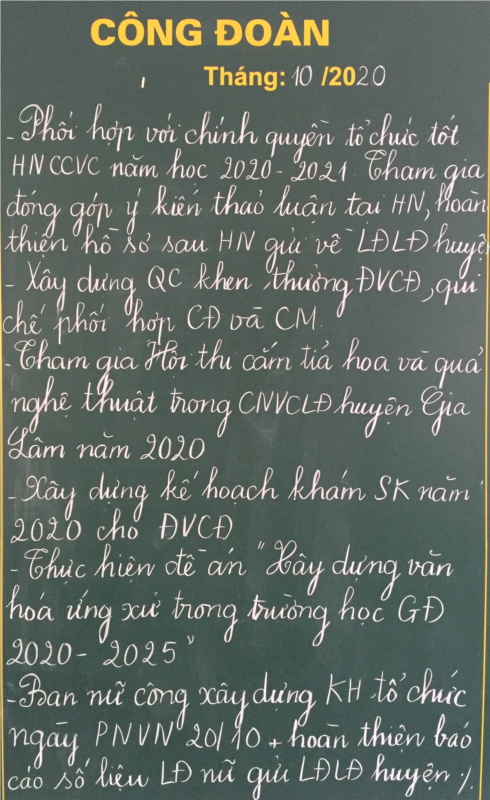 CÔNG ĐOÀN
Tháng: 10 /2020
- Phối hợp với chính quyền tổ chức tốt
HNCCVC năm học 2020 - 2021 Tham gia
đóng góp ý kiến thảo luận tại HN, hoàn
thiện hồ sơ sau HN gửi về LĐLĐ huyện
- Xây dựng QC khen thưởng ĐVCĐ, qui
chế phối hợp CĐ và CM.
- Tham gia Hội thi cắm tỉa hoa và quả
nghệ thuật trong CNVCLĐ huyện Gia
Lâm năm 2020
- Xây dựng kế hoạch khám SK năm
2020 cho ĐVCĐ
- Thực hiện đề án "Xây dựng văn
hoá ứng xử trong trường học GĐ
2020 - 2025"
- Ban nữ công xây dựng KH tổ chức
ngày PNVN 20/10 + hoàn thiện báo
cáo số liệu LĐ nữ gửi LĐLĐ huyện ./.